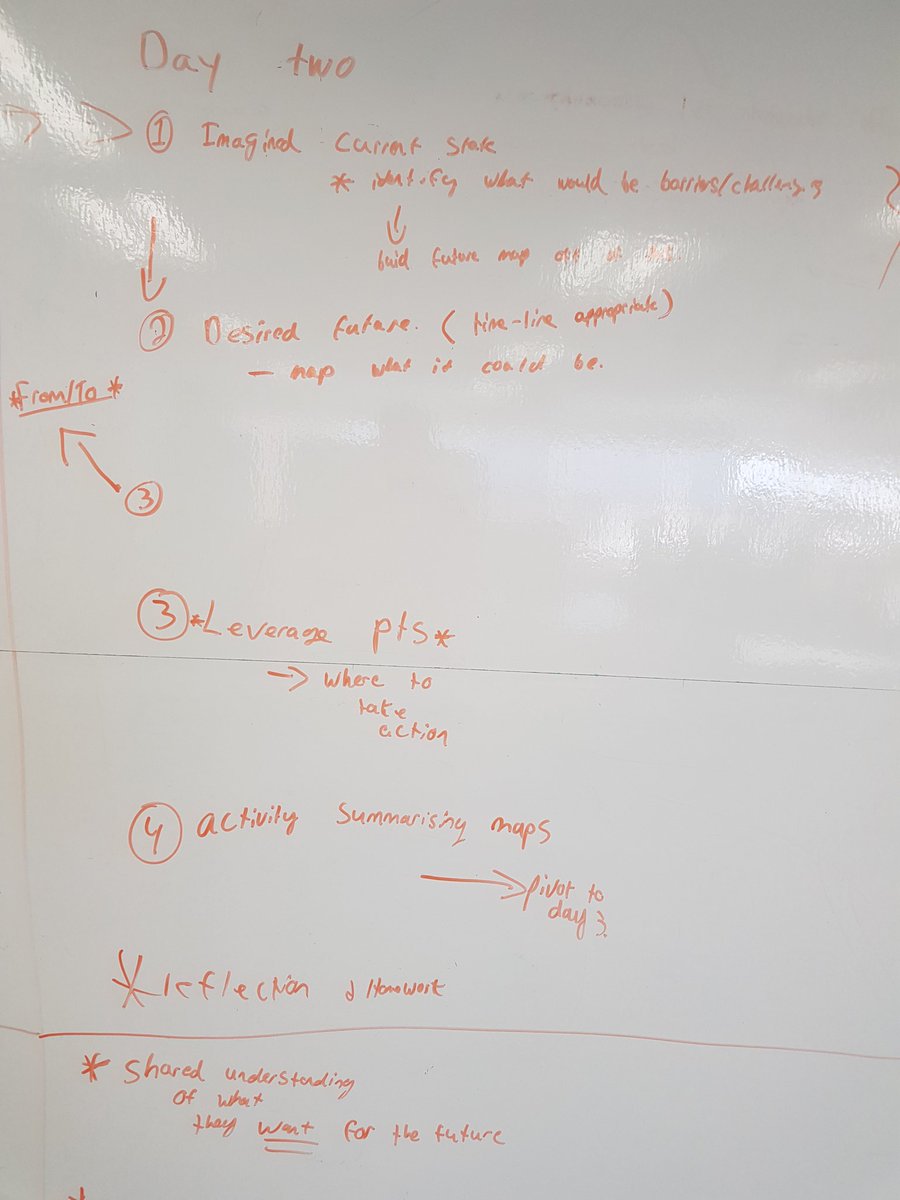 Day two
① Imagined Current State
* identify what would be barriers/challenges
build future map off of
② Desired future. (time-line appropriate)
- map what it could be.
*From/To*
③
③ *Leverage pts*
→ where to
take
action
④ activity summarising maps
→ pivot to
day 3.
* reflection & Homework
* Shared understanding
of what
they want for the future